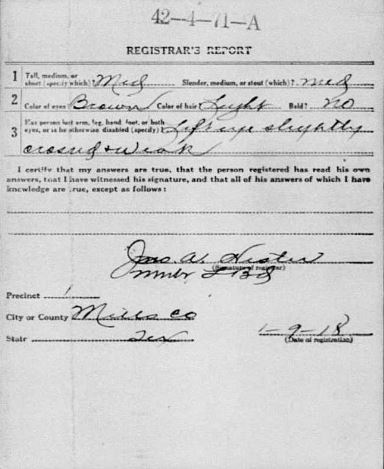 42-4-71-A
REGISTRAR'S REPORT
1 Tall, medium, or short (specify which)? Med Slender, medium, or stout (which)? med
2 Color of eyes? Brown Color of hair? Light Bald? no
3 Has person lost arm, leg, hand, foot, or both eyes, or is he otherwise disabled (specify)? Left eye slightly
crossed & weak
I certify that my answers are true, that the person registered has read his own
answers, that I have witnessed his signature, and that all of his answers of which I have
knowledge are true, except as follows:
Jno. A. Hester
(Signature of registrar)
Precinct 1
City or County Mills Co
State Tex
1-9-18
(Date of registration)